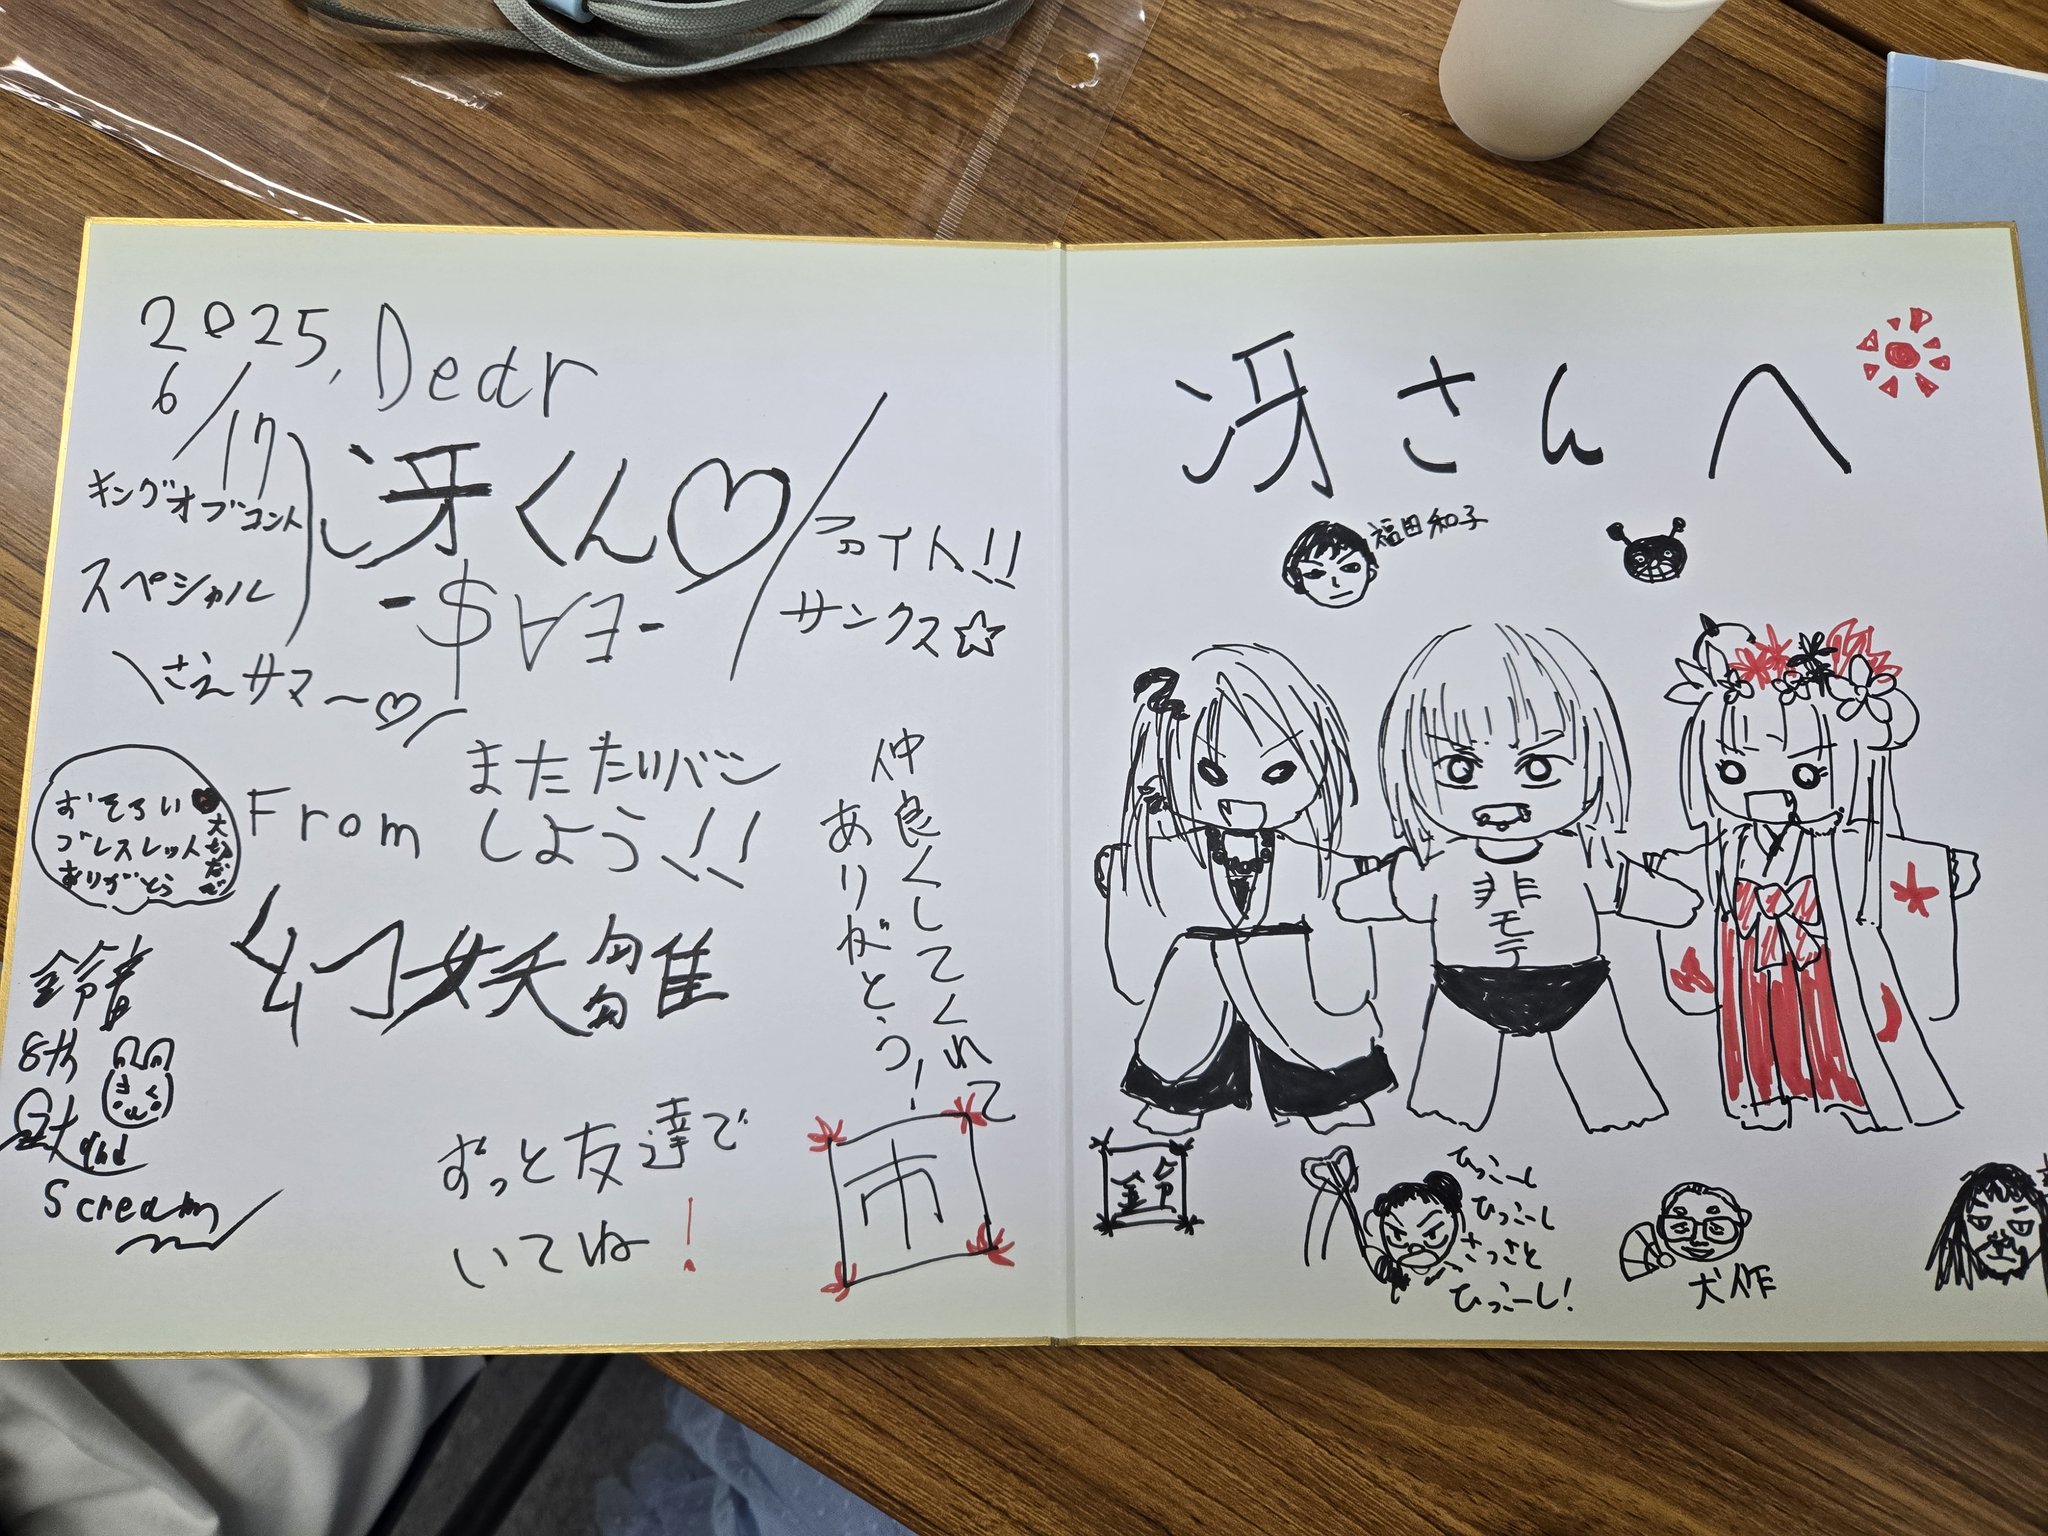 2025,
6/17
Dear
冴くん♡
-$∀ヨ-
キングオブコント
スペシャル
\さえサマ～♡/
ファイト!!
サンクス☆
From
またたいバン
しよう!!
おそろい
ブレスレット
ありがとう
大切
幻妖雛
仲良くしてくれて
ありがとう!
ずっと友達で
いてね!
市
鈴
8th
2nd
Scream
冴さんへ
福田和子
非モテ
鈴
ひっこーし
ひっこーし
さっさと
ひっこーし!
犬作